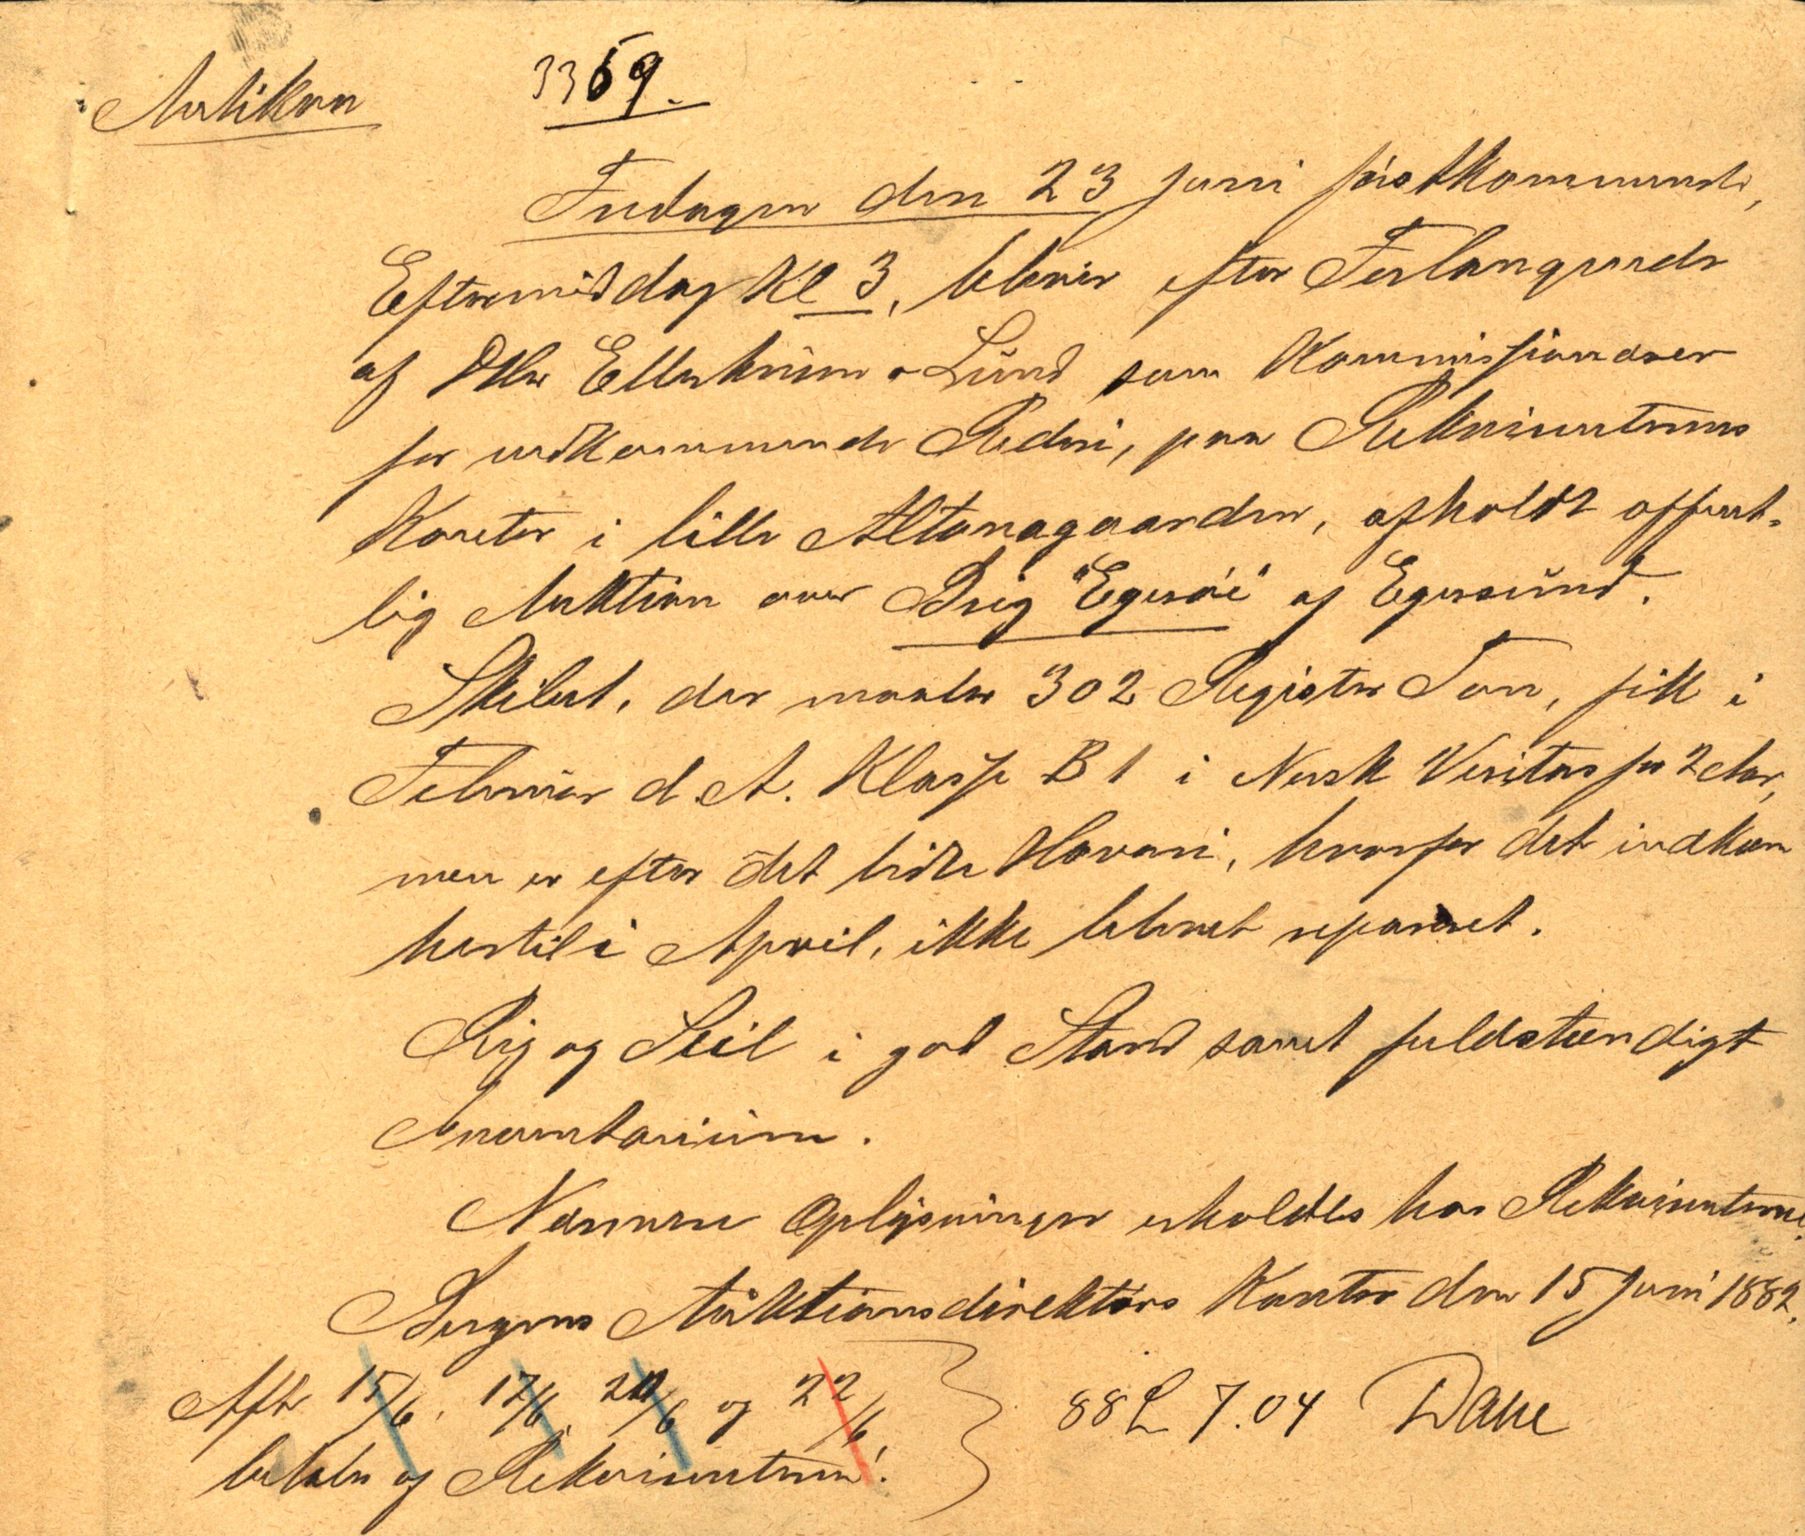 Auktion 3369.
Fredagen den 23 Juni førstkommende,
Eftermiddag Kl 3, bliver efter Forlangende
af DHrr Ellerhusen & Lund som Kommissionærer
for vedkommende Rederi, paa Rekvirenternes
Kontor i lille Altonagaarden, afholdt offent-
lig Auktion over Brig "Egerøe" af Egersund.
Skibet, der maaler 302 Register Ton, fik i
Februar d. A. Klasse B 1 i Norsk Veritas for 2 Aar,
men er efter det lidte Havari, hvorfor det indkom
hertil i April, ikke blevet repareret.
Rig og Seil i god Stand samt fuldstændigt
Inventarium.
Nærmere Oplysninger erholdes hos Rekvirenterne.
Bergens Auktionsdirektørs Kontor den 15 Juni 1882.
Aftr 15/6, 17/6, 20/6 og 22/6
betales af Rekvirenterne!
88 L 7.04